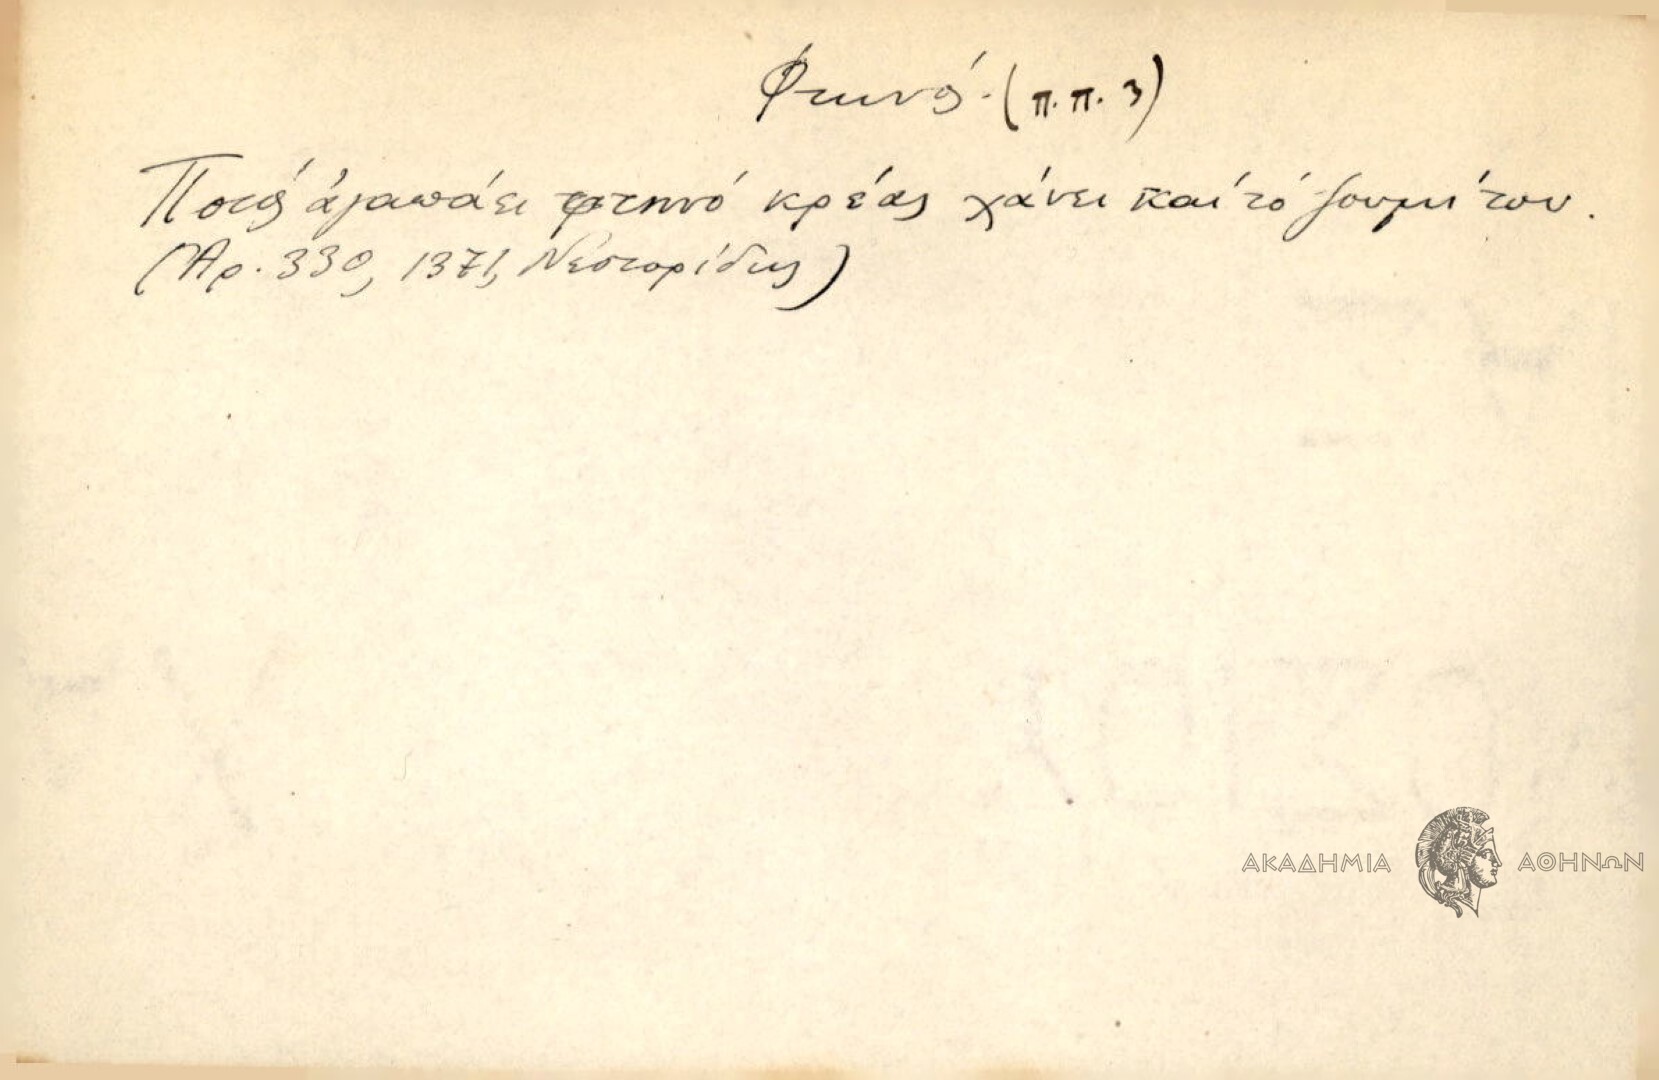 Φτηνός. (π.π. 3)
Ποιός ἀγαπάει φτηνό κρέας χάνει καί τό ζουμί του.
(Ἀρ. 330, 1371, Νεστορίδης)
ΑΚΑΔΗΜΙΑ ΑΘΗΝΩΝ